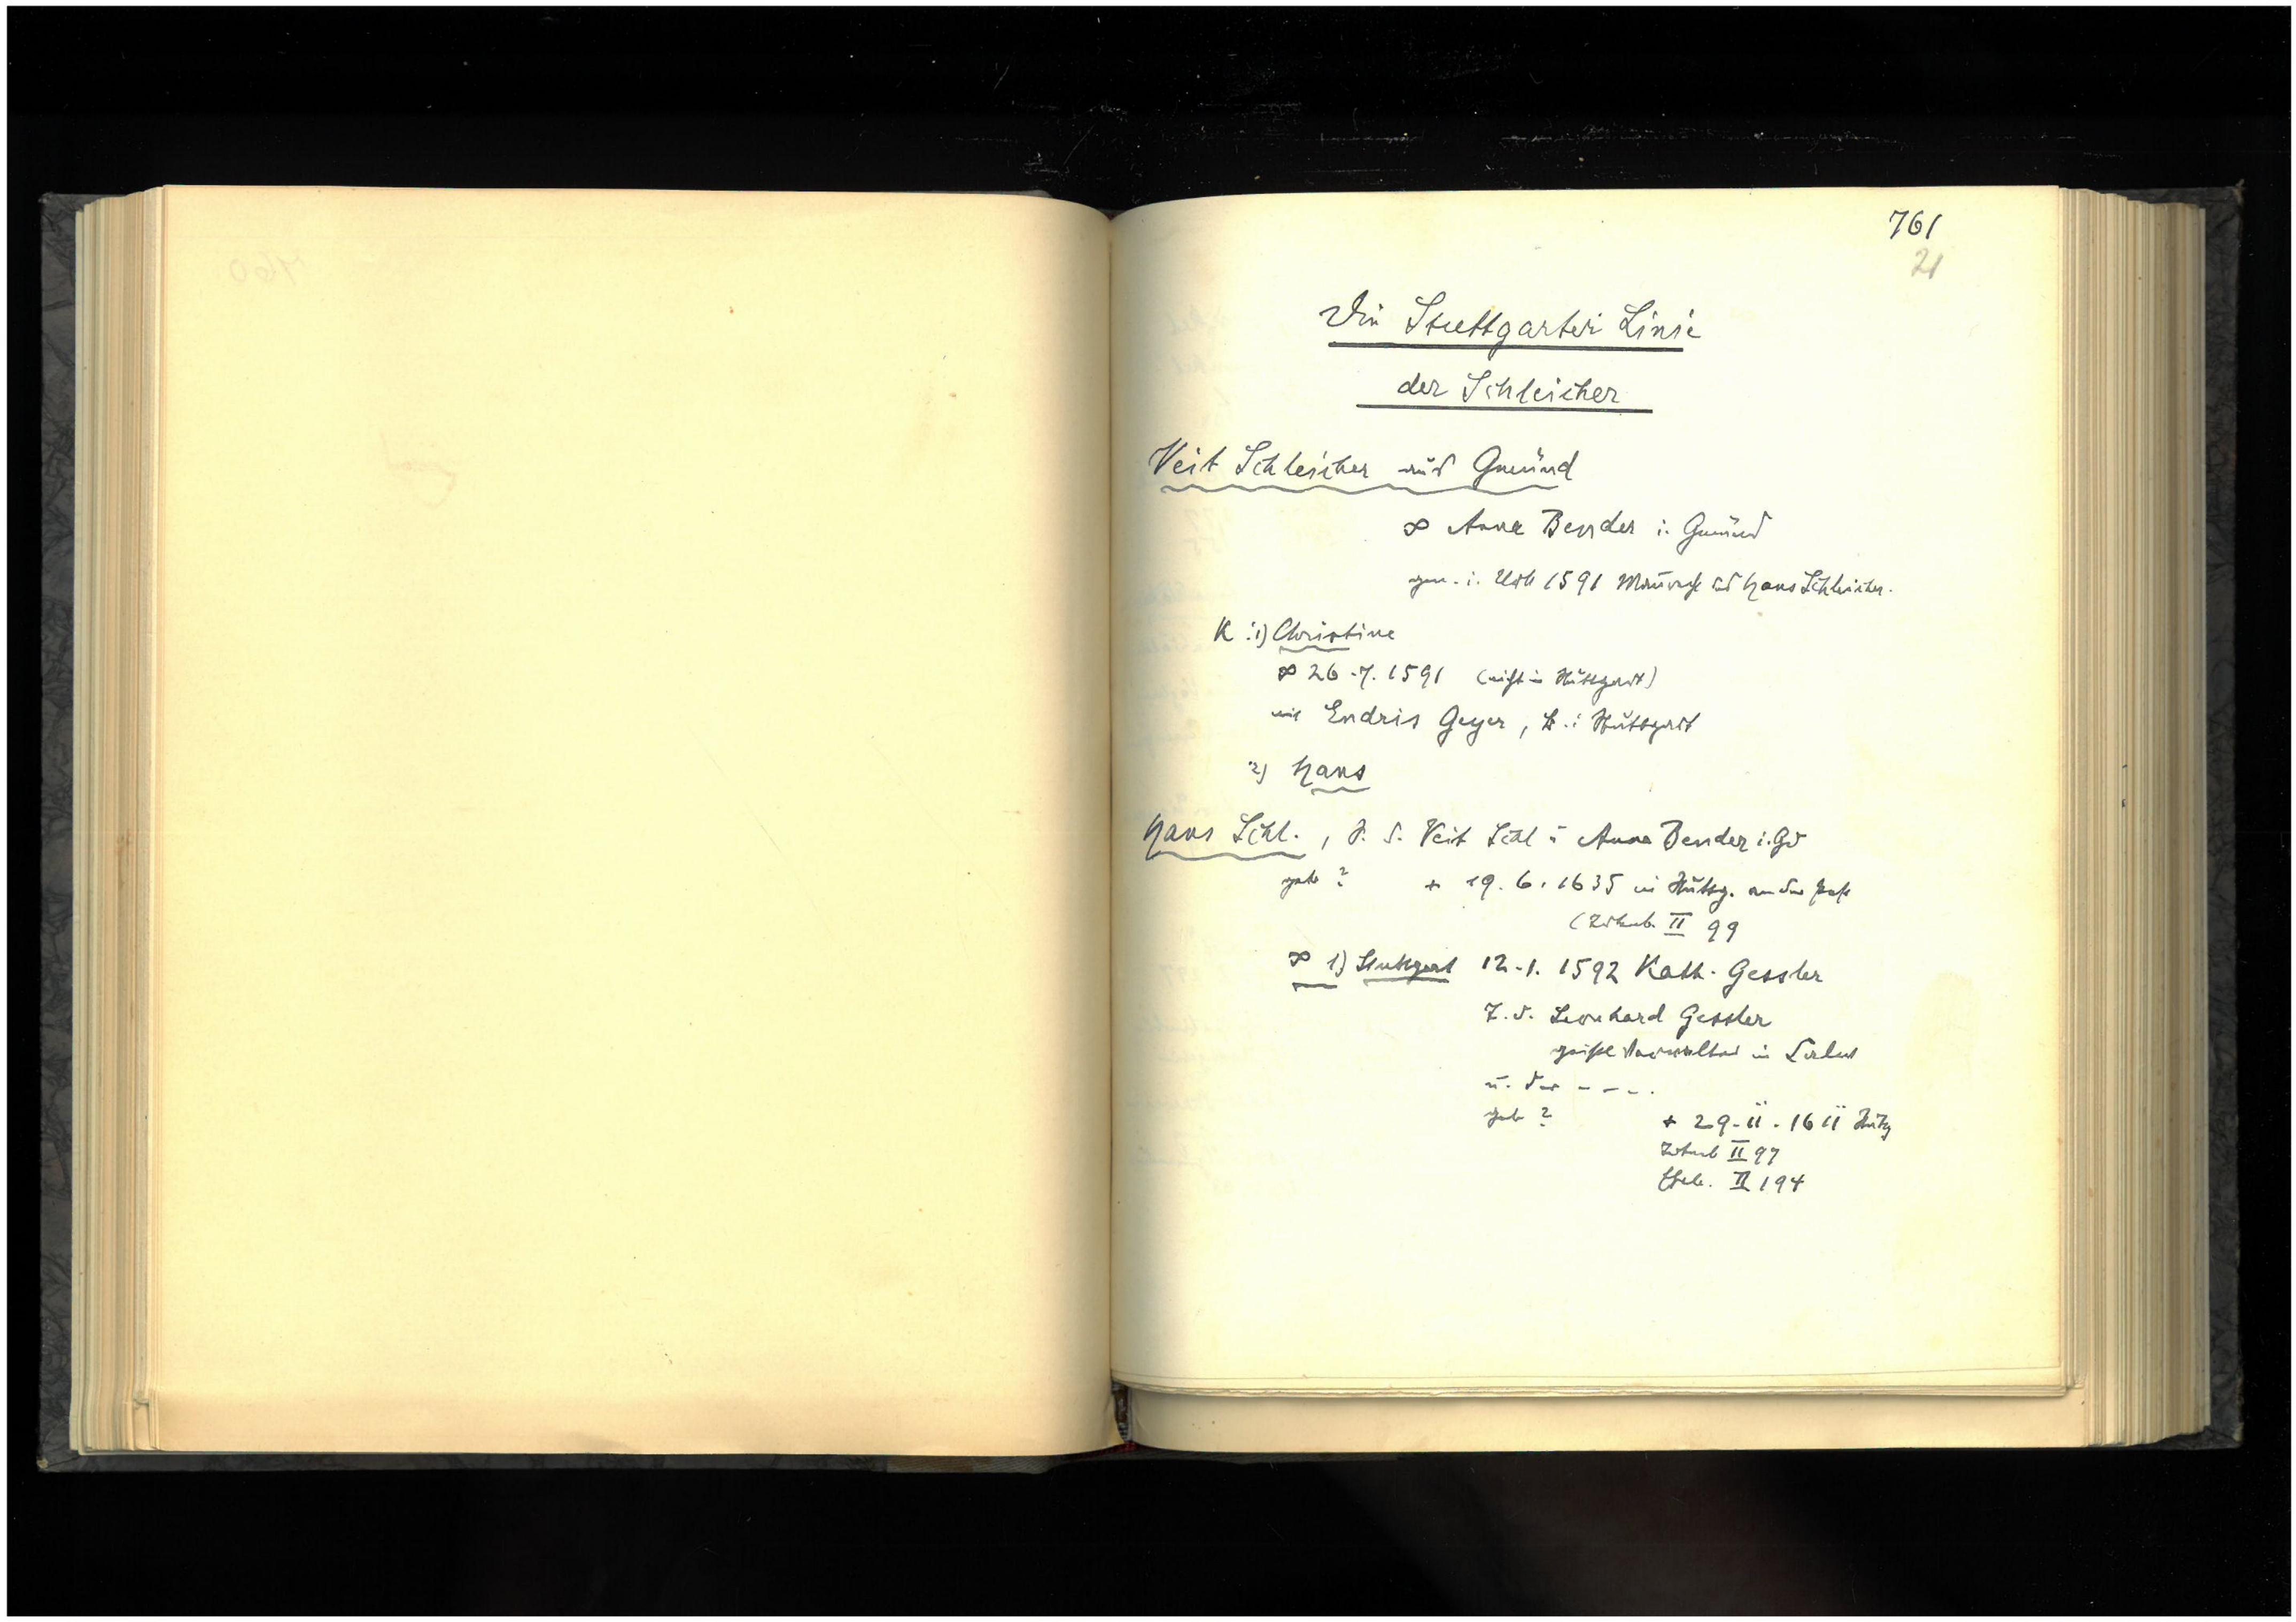 761
21
Die Stuttgarter Linie
der Schleicher
Veit Schleicher aus Gmünd
∞ Anna Bender i. Gmünd
gen. i. 1591 Hans Schleicher.
K : 1) Christine
∞ 26.7.1591 (nicht in Stuttgart)
mit Endris Geyer, B. i Stuttgart
2) Hans
Hans Schl., S. d. Veit Schl u Anna Bender i. Gd
geb ? + 19.6.1635 in Stuttg. an der Pest
II 99
∞ 1) Stuttgart 12.1.1592 Kath. Gessler
T. d. Leonhard Gessler
Verwalter in
u. der - - - .
geb ? + 29.11.1611 Stutg
II 97
II 194